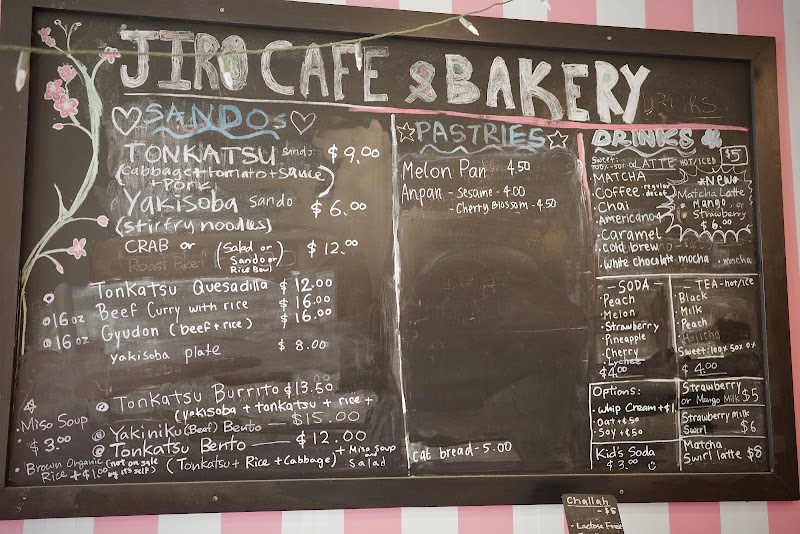 JIRO CAFE & BAKERY
SANDOS
TONKATSU sando $9.00
(cabbage + tomato + sauce
+ Pork)
Yakisoba sando $6.00
(stirfry noodles)
CRAB or (Salad or $12.00
Roast Beef Sando or
Rice Bowl)
Tonkatsu Quesadilla $12.00
16oz Beef Curry with rice $16.00
16oz Gyudon (beef + rice) $16.00
yakisoba plate $8.00
Tonkatsu Burrito $13.50
(yakisoba + tonkatsu + rice +
Yakiniku (Beef) Bento — $15.00
Tonkatsu Bento — $12.00
(Tonkatsu + Rice + Cabbage) + Miso Soup
and Salad
Miso Soup
$3.00
Brown Organic (not on sale
Rice + $1.00 by itself)
PASTRIES
Melon Pan 4.50
Anpan - Sesame - 4.00
- Cherry Blossom - 4.50
cat bread - 5.00
DRINKS
DRINKS
Sweet: LATTE HOT/ICED $5
MATCHA
Coffee regular
decaf
Chai
Americano 4
Caramel
Cold brew
White chocolate mocha · mocha
*NEW*
Matcha Latte
Mango or
Strawberry
$6.00
- SODA -
Peach
Melon
Strawberry
Pineapple
Cherry
Lychee
$4.00
- TEA - hot/ice
Black
Milk
Peach
Hojicha
Sweet: 100% 50% 0%
$4.00
Options:
Whip Cream + $1
Oat + $.50
Soy + $.50
Kid's Soda
$3.00
Strawberry
or Mango Milk $5
Strawberry Milk
Swirl $6
Matcha
Swirl latte $8
Challah
- $5
- Lactose Free